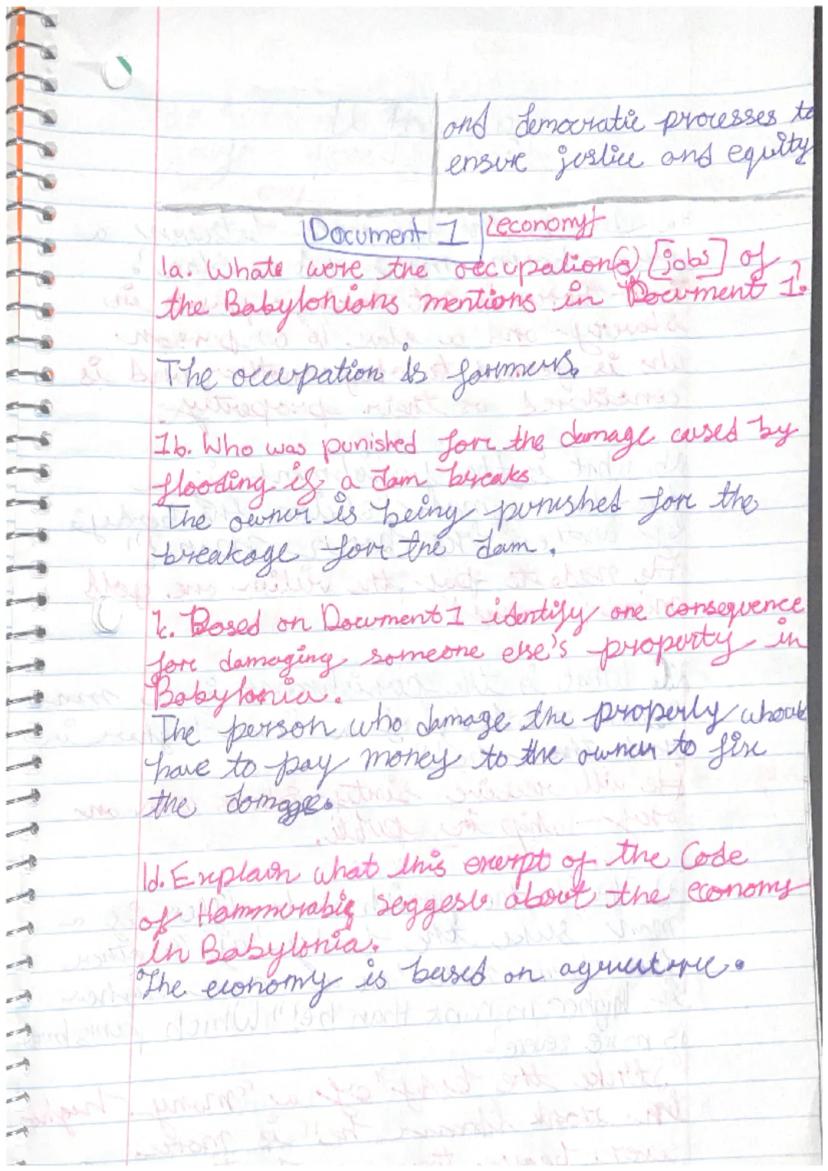 and democratic processes to
ensure justice and equity
Document 1 economy
1a. Whats were the occupation(s) [jobs] of
the Babylonians mentions in Document 1?
The occupation is farmers.
1b. Who was punished for the damage caused by
flooding if a dam breaks
The owner is being punished for the
breakage for the dam.
1c. Based on Document 1 identify one consequence
for damaging someone else's property in
Babylonia.
The person who damage the property
have to pay money to the owner to fix
the damages.
1d. Explain what this exerpt of the Code
of Hammurabi seggest about the economy
in Babylonia.
The economy is based on